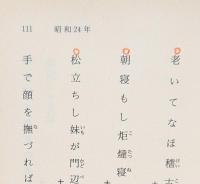 111 昭和24年
老いてなほ稽古
朝寝もし炬燵寝
松立ちし妹が門辺
手で顔を撫づれば